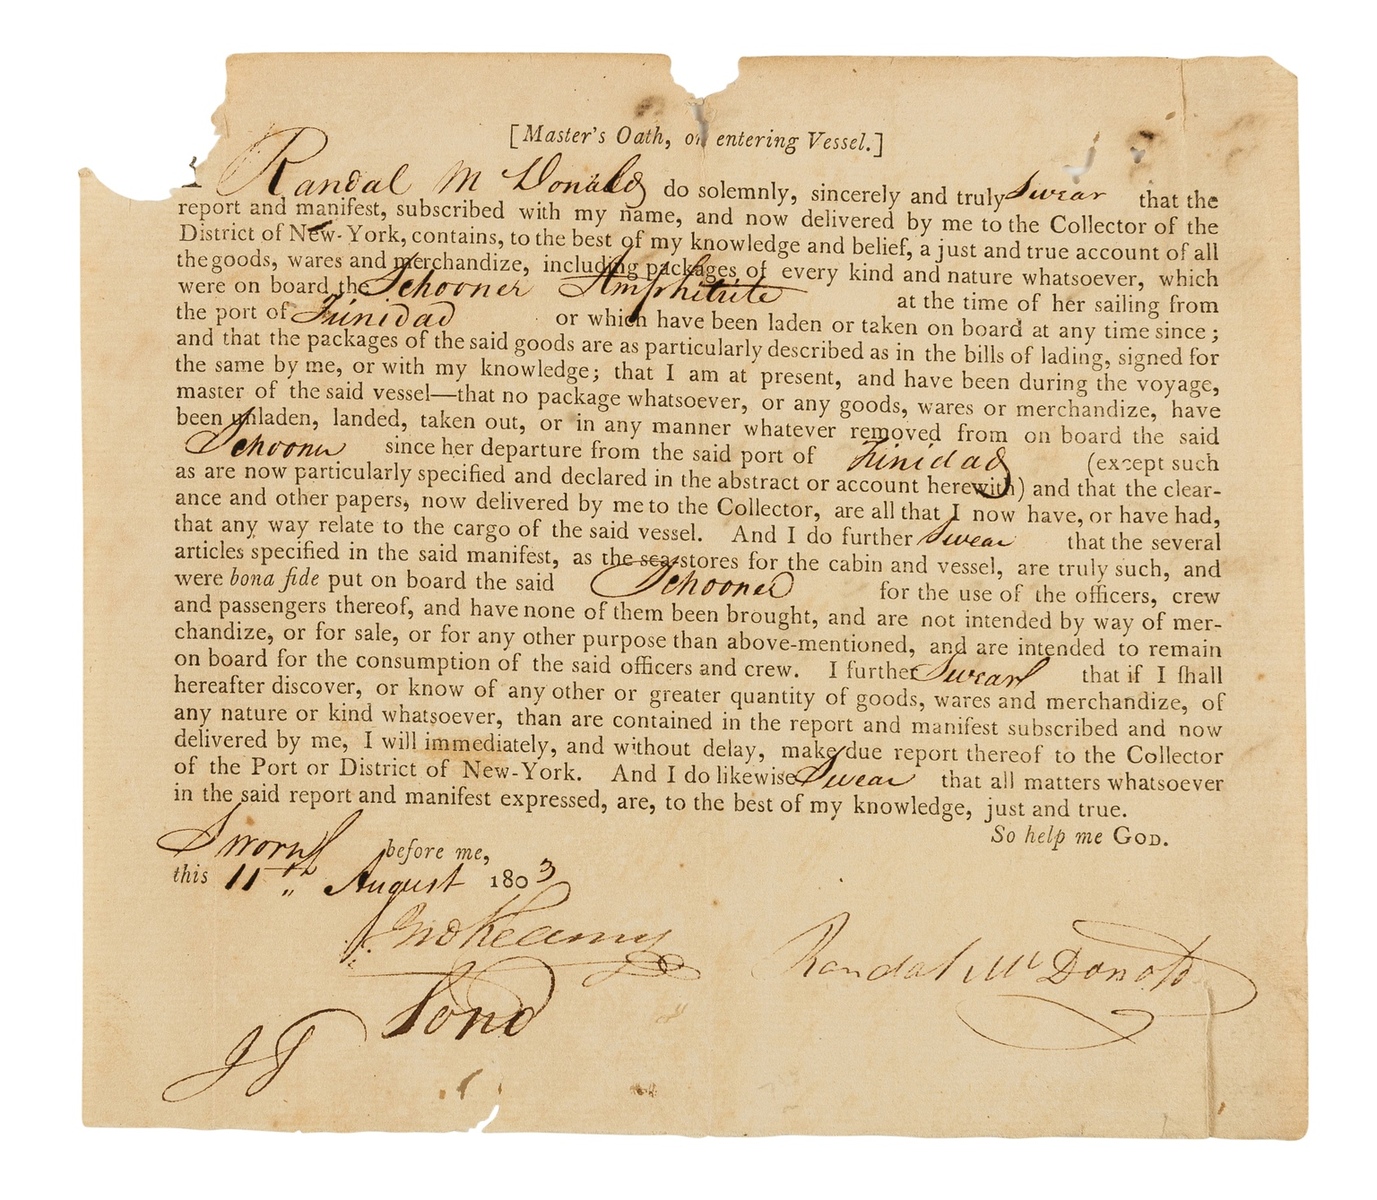 [Master's Oath, on entering Vessel.]
I Randal Mc Donald do solemnly, sincerely and truly Swear that the
report and manifest, subscribed with my name, and now delivered by me to the Collector of the
District of New-York, contains, to the best of my knowledge and belief, a just and true account of all
the goods, wares and merchandize, including packages of every kind and nature whatsoever, which
were on board the Schooner Amphitrite at the time of her sailing from
the port of Trinidad or which have been laden or taken on board at any time since;
and that the packages of the said goods are as particularly described as in the bills of lading, signed for
the same by me, or with my knowledge; that I am at present, and have been during the voyage,
master of the said vessel—that no package whatsoever, or any goods, wares or merchandize, have
been unladen, landed, taken out, or in any manner whatever removed from on board the said
Schooner since her departure from the said port of Trinidad (except such
as are now particularly specified and declared in the abstract or account herewith) and that the clear-
ance and other papers, now delivered by me to the Collector, are all that I now have, or have had,
that any way relate to the cargo of the said vessel. And I do further Swear that the several
articles specified in the said manifest, as the sea-stores for the cabin and vessel, are truly such, and
were bona fide put on board the said Schooner for the use of the officers, crew
and passengers thereof, and have none of them been brought, and are not intended by way of mer-
chandize, or for sale, or for any other purpose than above-mentioned, and are intended to remain
on board for the consumption of the said officers and crew. I further Swear that if I shall
hereafter discover, or know of any other or greater quantity of goods, wares and merchandize, of
any nature or kind whatsoever, than are contained in the report and manifest subscribed and now
delivered by me, I will immediately, and without delay, make due report thereof to the Collector
of the Port or District of New-York. And I do likewise Swear that all matters whatsoever
in the said report and manifest expressed, are, to the best of my knowledge, just and true.
So help me GOD.
Sworn before me,
this 11th August 1803
Randal Mc Donald